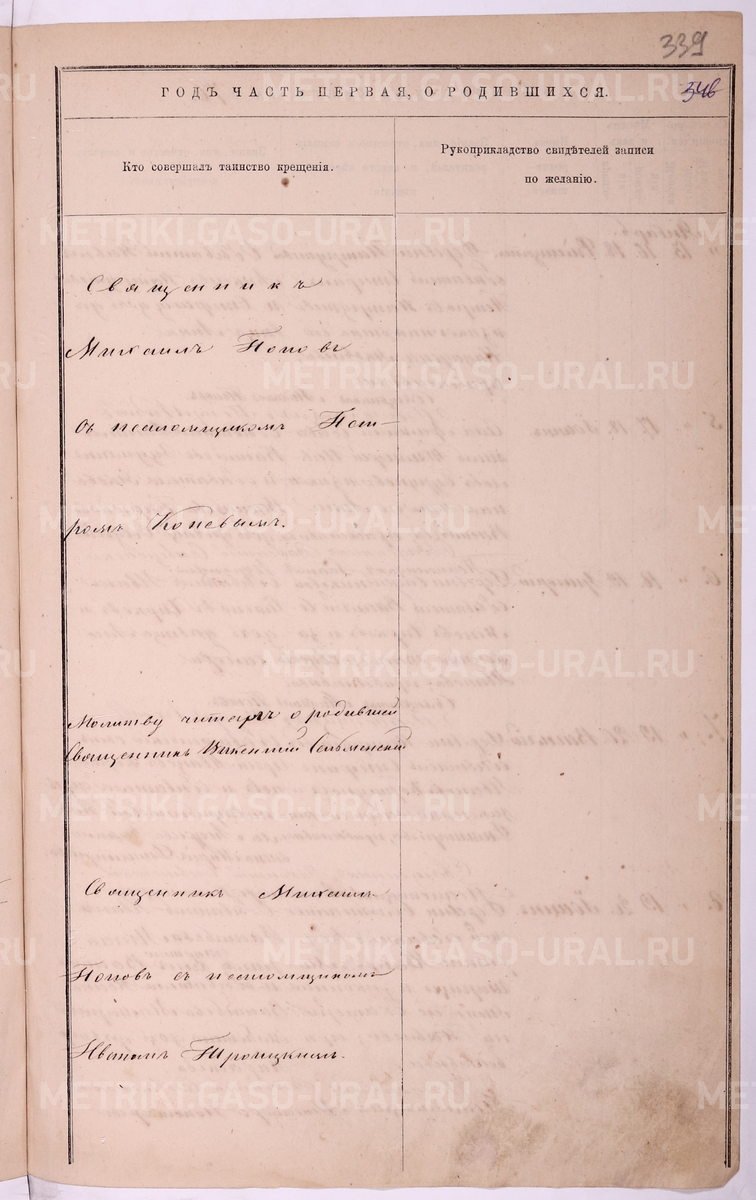 339
346
ГОДЪ ЧАСТЬ ПЕРВАЯ, О РОДИВШИХСЯ.
Кто совершалъ таинство крещенія.
Рукоприкладство свидѣтелей записи
по желанію.
Священникъ
Михаилъ Поповъ
съ псаломщикомъ Пет-
ромъ Коневымъ.
Молитву читалъ о родившей
Священникъ Викентій
Священникъ Михаилъ
Поповъ съ псаломщикомъ
Иваномъ Троицкимъ.
METRIKI.GASO-URAL.RU